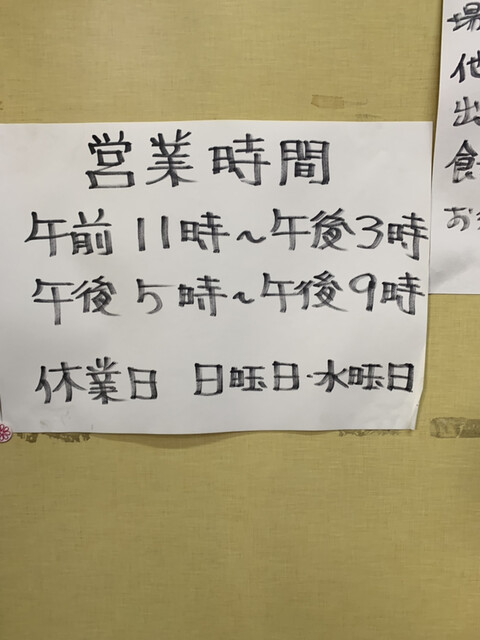 営業時間
午前11時~午後3時
午後5時~午後9時
休業日 日旺日・水旺日
場
他
出
食
お